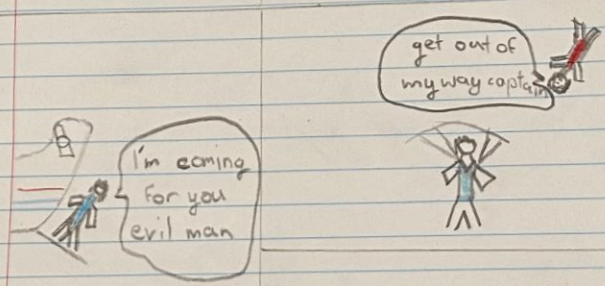 I'm coming
for you
evil man
get out of
my way captain